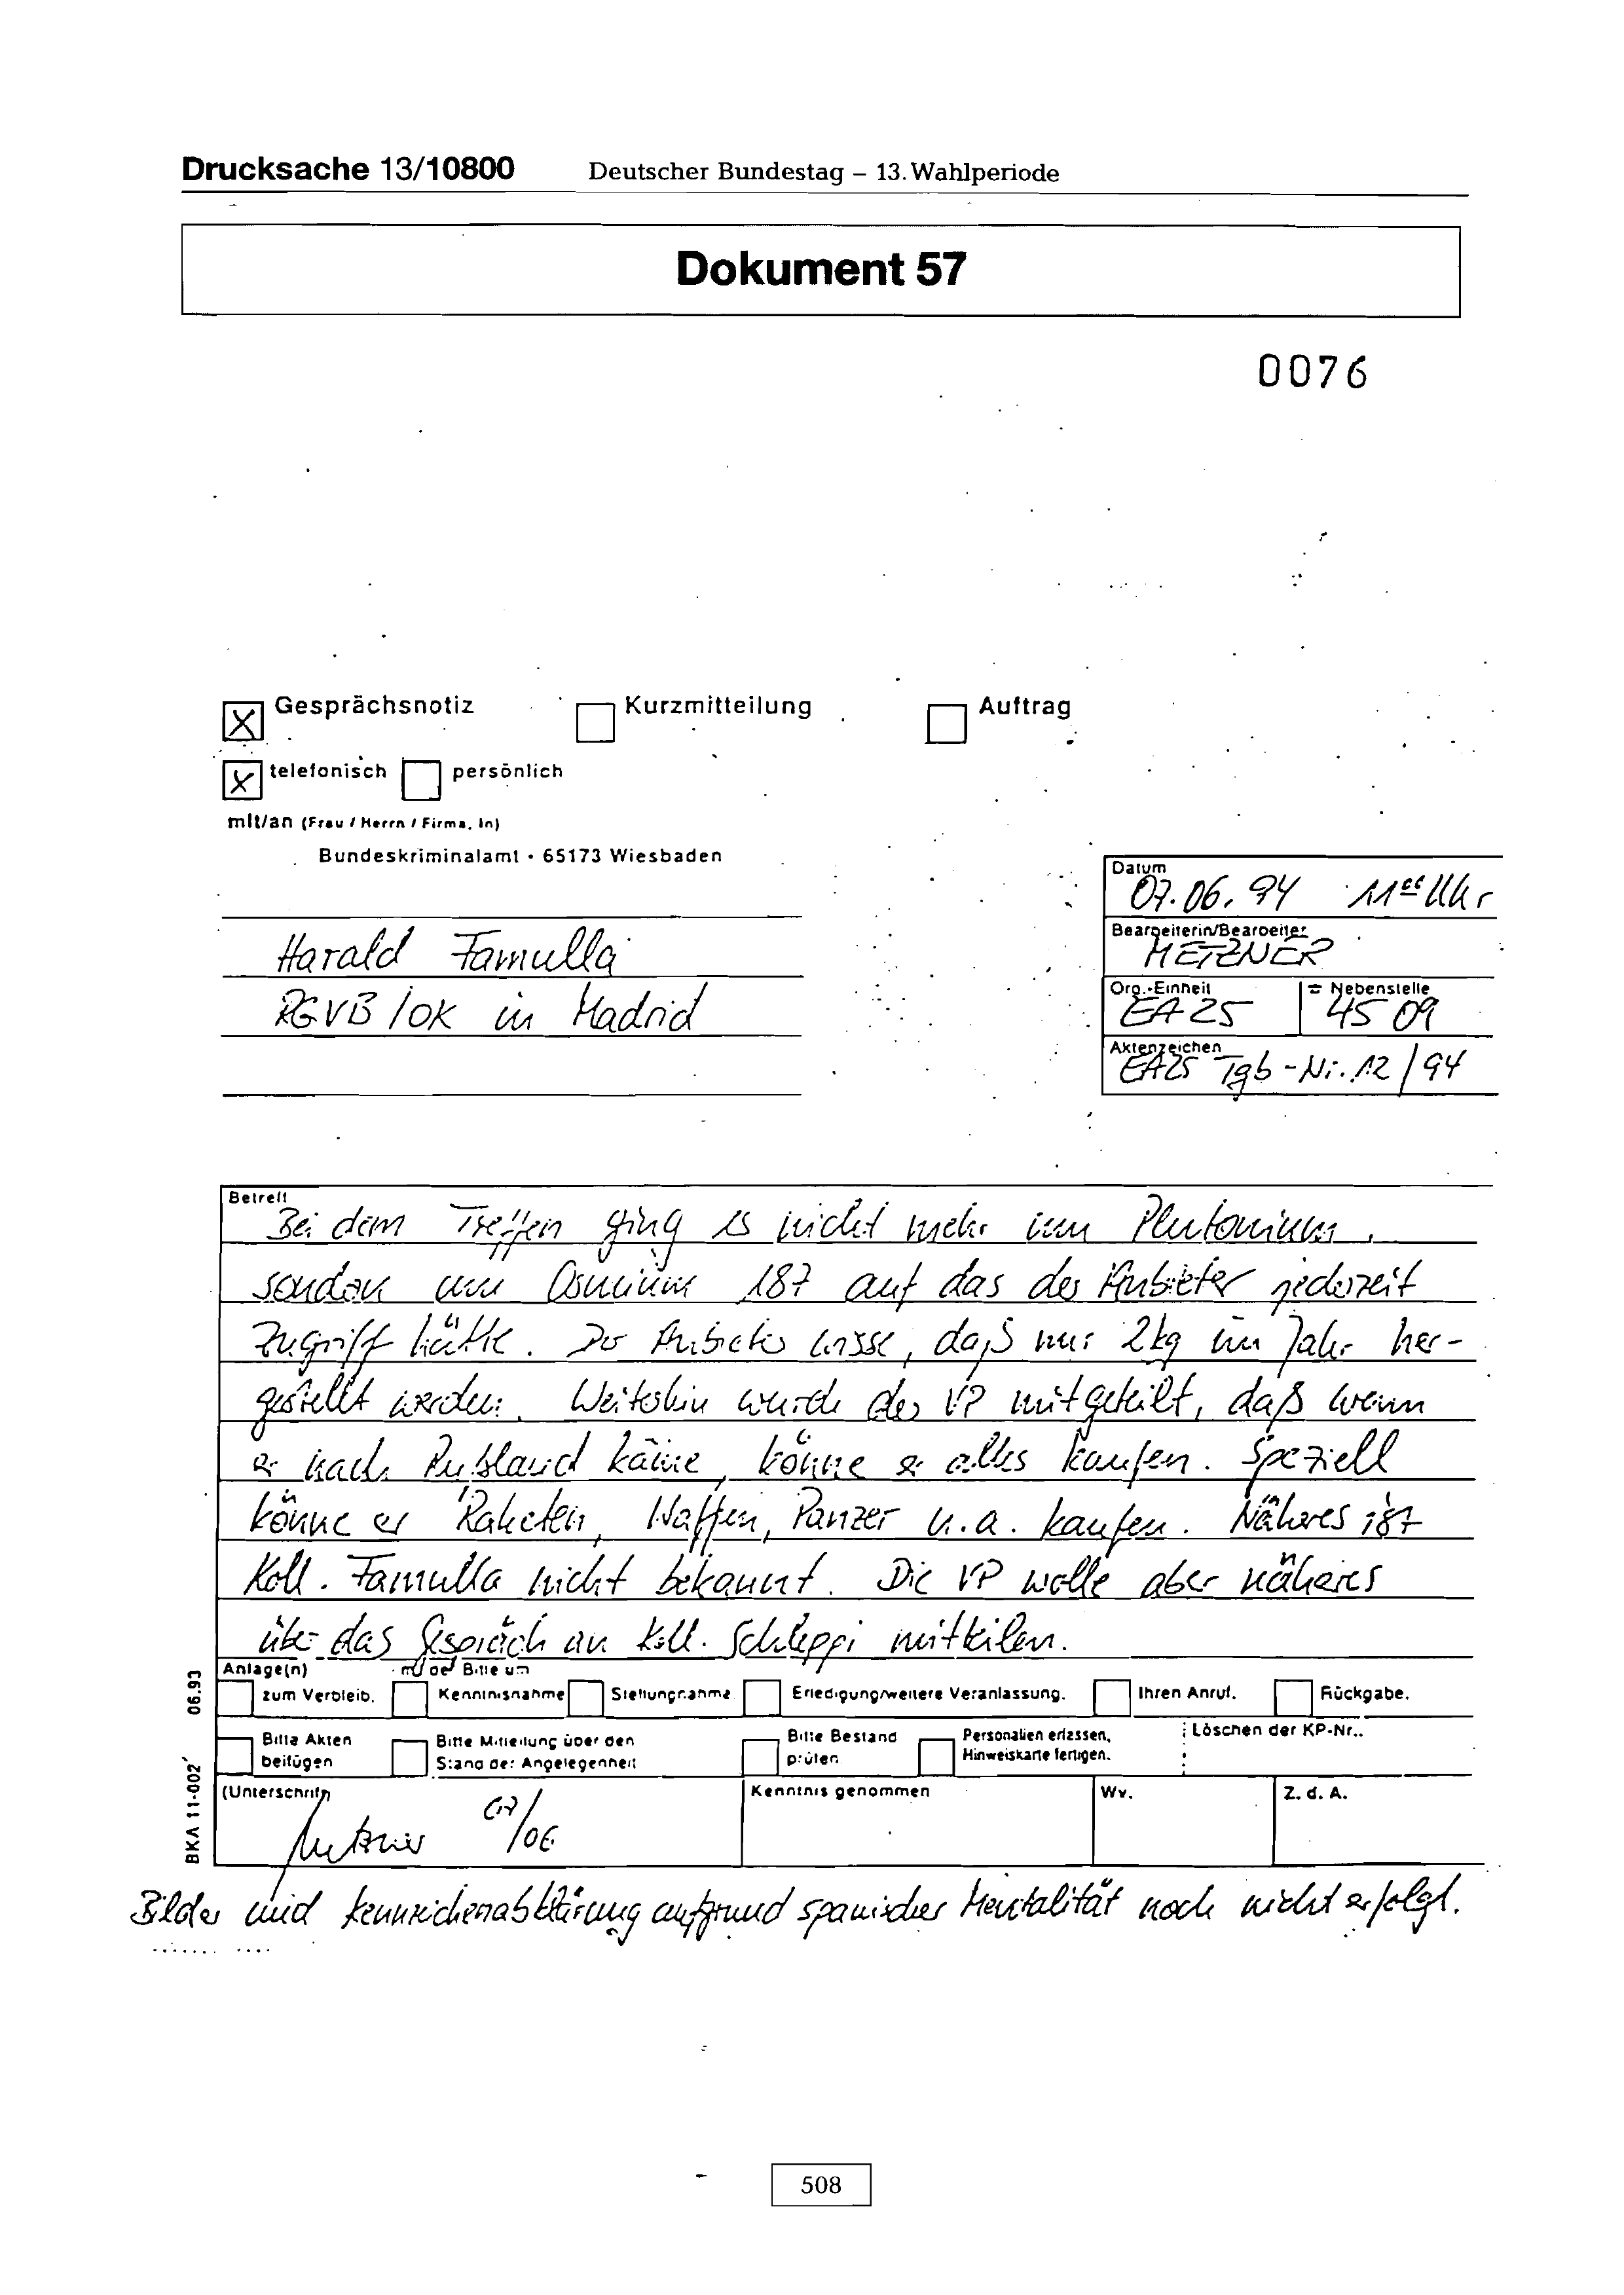 Drucksache 13/10800 Deutscher Bundestag – 13. Wahlperiode
Dokument 57
0076
Gesprächsnotiz Kurzmitteilung Auftrag
telefonisch persönlich
mit/an (Frau / Herrn / Firma, In)
Bundeskriminalamt • 65173 Wiesbaden
Datum
07.06.94 11⁰⁰ Uhr
Bearbeiterin/Bearbeiter
METZNER
Harald Famulla
RGVB/OK in Madrid
Org.-Einheit Nebenstelle
EA 25 45 09
Aktenzeichen
EA25 Tgb-Nr. 12/94
Betreff
Bei dem Treffen ging es nicht mehr um Plutonium,
sondern um Osmium 187 auf das der Anbieter jederzeit
Zugriff hätte. Der Anbieter wisse, daß nur 2kg im Jahr her-
gestellt werden. Weiterhin wurde der VP mitgeteilt, daß wenn
er nach Rußland käme, könne er alles kaufen. Speziell
könne er Raketen, Waffen, Panzer u.a. kaufen. Näheres ist
Koll. Famulla nicht bekannt. Die VP wolle aber näheres
über das Gespräch an Koll. Schleppi mitteilen.
Anlage(n) mit der Bitte um
zum Verbleib. Kenntnisnahme Stellungnahme Erledigung/weitere Veranlassung. Ihren Anruf. Rückgabe.
Bitte Akten beifügen Bitte Mitteilung über den Stand der Angelegenheit Bitte Bestand prüfen Personalien erfassen, Hinweiskarte fertigen. Löschen der KP-Nr..
(Unterschrift) Kenntnis genommen Wv. Z. d. A.
Metzner 07/06
BKA 11-002 06.93
Bilder und Kennzeichenabklärung aufgrund spanischer Mentalität noch nicht erfolgt.
508